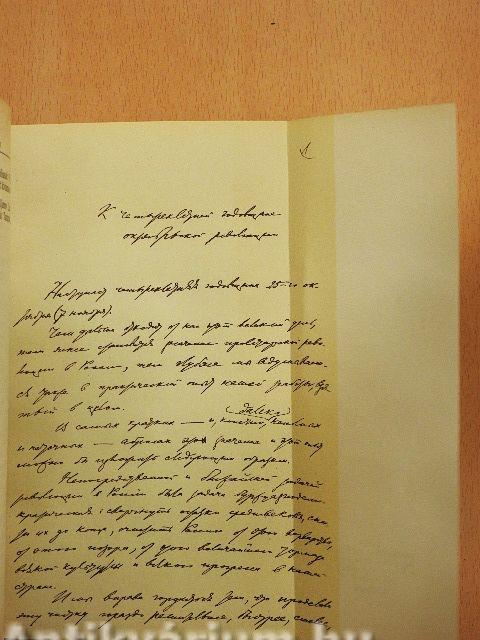 К четырехлетней годовщине
октябрьской революции
Наступает четырехлетняя годовщина 25-го ок-
тября (7 ноября).
Чем дальше отходит от нас этот великий день,
тем яснее становится значение пролетарской рево-
люции в России, тем глубже мы вдумываем-
ся также в практический опыт нашей работы, взя-
тый в целом.
далеко
В самых кратких — и, конечно,
и неточных — значение и этот опыт
можно бы изложить следующим образом.
Непосредственной и ближайшей задачей
революции в России была задача буржуазно-дем-
кратическая: свергнуть остатки средневековья, сне-
сти их до конца, очистить Россию от этого варварства,
от этого позора, от этого величайшего тормоза
всякой культуры и всякого прогресса в нашей
стране.
И мы вправе гордиться тем, что проделали
эту чистку гораздо решительнее, быстрее, смелее,
Antikvarium.hu